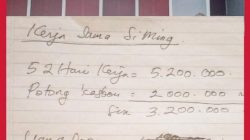 Kerja Sama Si Ming
52 Hari Kerja = 5.200.000.
Potong kasbon = 2.000.000
Sisa 3.200.000